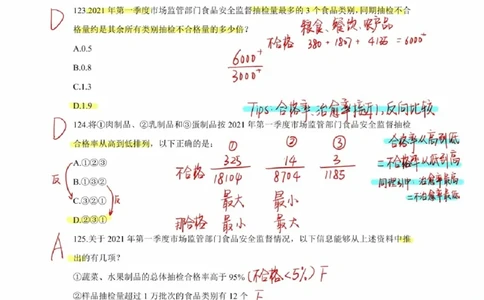 D
123.2021 年第一季度市场监管部门食品安全监督抽检量最多的 3 个食品类别,同期抽检不合
格量约是其余所有类别抽检不合格量的多少倍?
粮食、餐饮、农产品
不合格 380+1807+4135=6000⁺
A.0.5
6000⁺
3000⁺
B.0.8
C.1.3
D.1.9
Tips 合格率、治愈率接近1,反向比较
D
124.将①肉制品、②乳制品和③蛋制品按 2021 年第一季度市场监管部门食品安全监督抽检
合格率从高到低排列,以下正确的是:
① ② ③
合格率从高到低
=不合格率从低到高
A.①②③
不合格 325 14 3
18104 8704 1185
反
B.①③②
同理 治愈率最高
=不治愈率最低
C.③②①
反
最大 最小
D.②③①
合格 最小 最大
A
125.关于 2021 年第一季度市场监管部门食品安全监督情况,以下信息能够从上述资料中推
出的有几项?
①蔬菜、水果制品的总体抽检合格率高于 95%
(不合格<5%) F
②样品抽检量超过 1 万批次的食品类别有 12 个
F